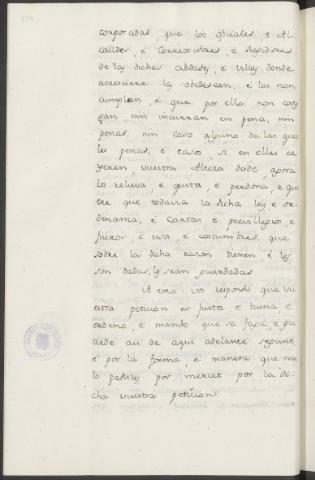 corporadas, que los oficiales, e Al
calldes, e Corregidores, e Regidores
de las dichas cibdades, e villas donde
acaesciere las obedescan, e las non
cumplan, e que por ello non cay
gan, nin incurran en pena, nin
penas, nin caso alguno de las qua
les penas, e casos, si en ellas ca
yeren, vuestra Alteza desde agora
los releva e quita, e perdona, e qui
ere que todavia la dicha ley e or
denanza, e Cartas e previllegios, e
fueros, e usos, e costumbres, que
sobre la dicha razon tienen, e les
son dadas, les sean guardadas
A esto vos respondo que vu
estra peticion es justa e buena e
ordeno, e mando que se faga, e gu
arde asi de aqui adelante segunt,
e por la forma, e manera que me
lo pedistes por merced por la di
cha vuestra peticion